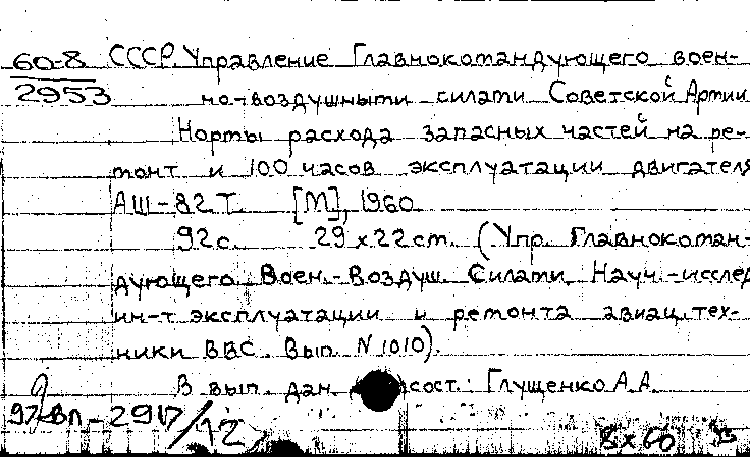 60-8 СССР. Управление Главнокомандующего воен-
2953 но-воздушными силами Советской Армии
Нормы расхода запасных частей на ре-
монт и 100 часов эксплуатации двигателя
АШ-82Т. [М], 1960.
92с. 29х22см. (Упр. Главнокоман-
дующего Воен.-Воздуш. Силами Науч.-исслед
ин-т эксплуатации и ремонта авиац. тех-
ники ВВС. Вып. N1010).
В вып. дан. сост.: Глущенко А.А.
2917/12
8х60